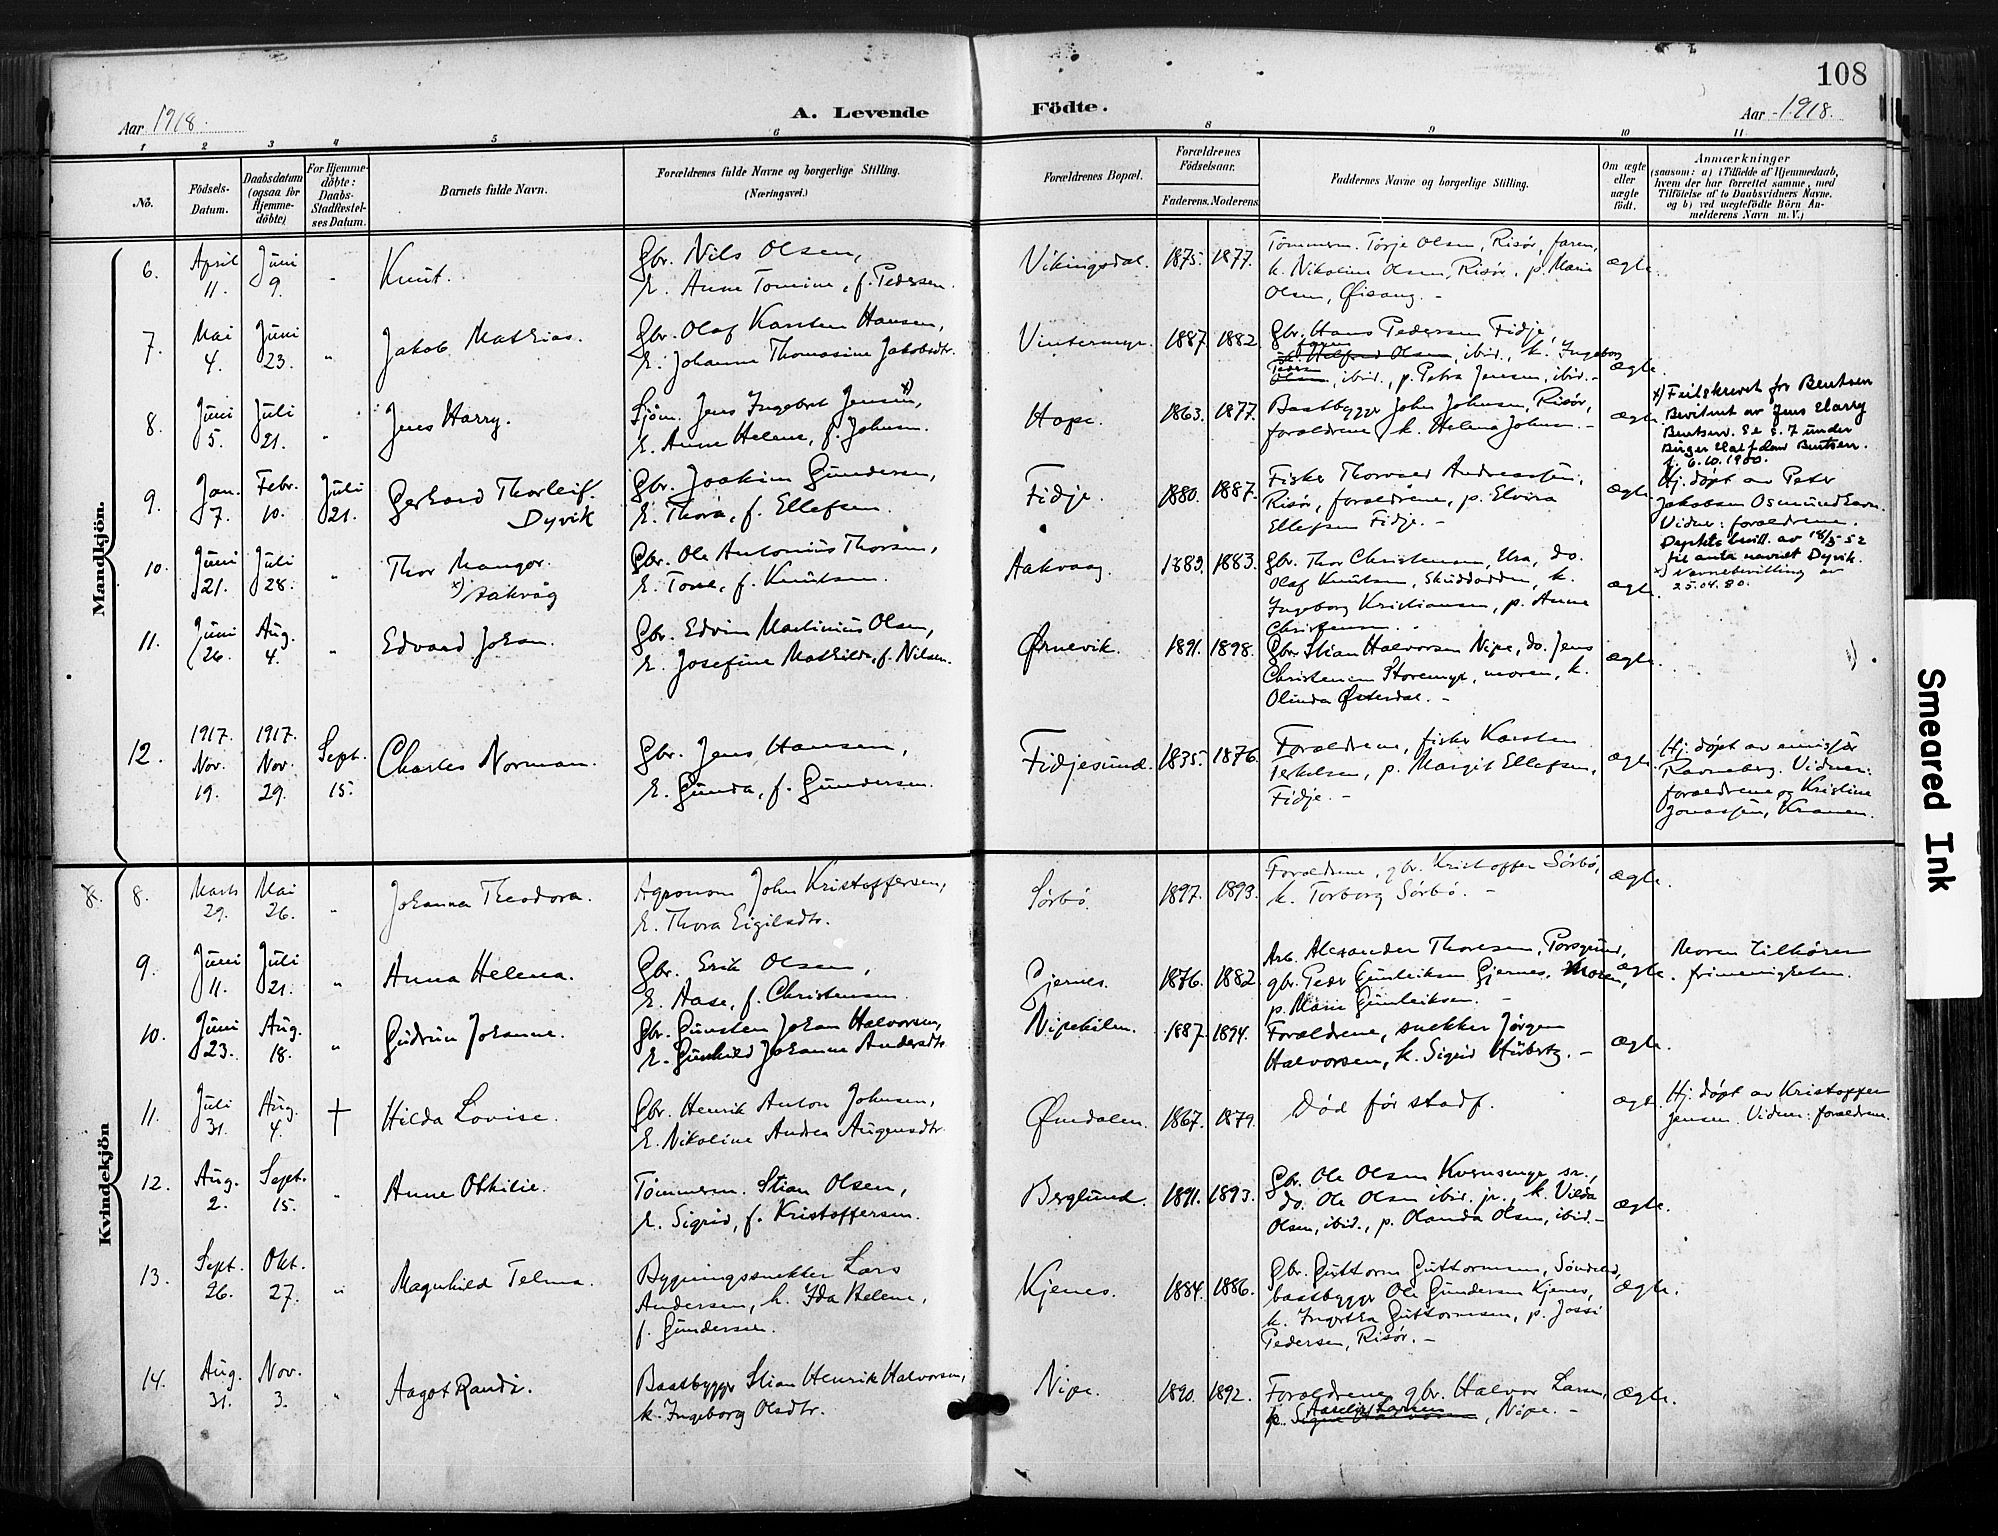 108
Aar 1918.
A. Levende
Födte.
Aar 1918.
1 2 3 4 5 6 8 9 10 11
No.
Födsels-
Datum.
Daabsdatum
(ogsaa for
Hjemme-
döbte)
For Hjemme-
döbte:
Daabs-
Stadfæstel-
ses Datum.
Barnets fulde Navn.
Forældrenes fulde Navne og borgerlige Stilling.
(Næringsvei.)
Forældrenes Bopæl.
Forældrenes
Födselsaar.
Faderens. Moderens
Faddernes Navne og borgerlige Stilling.
Om ægte
eller
uægte
födt.
Anmærkninger
(saasom: a) i Tilfælde af Hjemmedaab,
hvem der har forrettet samme, med
Tilföielse af to Daabsvidners Navne.
og b) ved uægtefödte Börn An-
melderens Navn m. V.)
Mandkjön.
6. April 11. Juni 9. Knut.
Gbr. Nils Olsen,
h. Anne Tomine, f. Pedersen.
Vikingsdal. 1875. 1877.
Tømmerm. Terje Olsen, Risør, faren,
k. Nikoline Olsen, Risør, p. Marie
Olsen, Øisang. -
ægte.
7. Mai 4. Juni 23. " Jakob Mathias.
Gbr. Olaf Karsten Hansen,
h. Johanne Thomasine Jakobsdtr.
Vintermyr. 1887. 1882.
Gbr. Hans Pedersen Fidje,
faren
Olsen, ibid., k. Ingeborg
Olsen, ibid., p. Petra Jensen, ibid. -
ægte.
8. Juni 5. Juli 21. " Jens Harry.
Sjøm. Jens Ingebret Jensen x),
h. Anne Helene, f. Johnsen.
Hope. 1863. 1877.
Baatbygger John Johnsen, Risør,
forældrene, k. Helena Johnsen. -
ægte.
x) Feilskrevet for Bentsen
Bevitnet av Jens Harry
Bentsen. Se s. 7 under
Birger Halfdan Bentsen.
f. 6.10.1900.
9. Jan. 7. Febr. 10. Juli 21. Gerhard Thorleif.
Dyvik
Gbr. Joakim Gundersen,
h. Thora, f. Ellefsen.
Fidje. 1880. 1887.
Fisker Thorvald Andreassen,
Risør, forældrene, p. Elvira
Ellefsen Fidje. -
ægte.
Hj. døpt av Peter
Jakobsen Osmundsavn.
Vidner: forældrene.
Deptets bevill. av 18/3-52
til anta navnet Dyvik.
10. Juni 21. Juli 28. " Thor Mangor.
x) Aakvåg
Gbr. Ole Antonius Thorsen,
h. Tone, f. Knutsen.
Aakvaag. 1883. 1883.
Gbr. Thor Christensen, Ura, do.
Olaf Knutsen, Skuddodden, k.
Ingeborg Kristiansen, p. Anne
Christensen. -
ægte.
x) Navnebevilling av
25.04.80.
11. Juni 26. Aug. 4. " Edvard Johan.
Gbr. Edvin Martinius Olsen,
h. Josefine Mathilde, f. Nilsen.
Ørnevik. 1891. 1898.
Gbr. Stian Halvorsen Nipe, do. Jens
Christensen Storemyr, moren, k.
Olinda Østerdal. -
ægte.
12. 1917. Nov. 19. 1917. Nov. 29. Sept. 15. Charles Norman.
Gbr. Jens Hansen,
h. Gunda, f. Gundersen.
Fidjesund. 1835. 1876.
Forældrene, fisker Karsten
Terkelsen, p. Margit Ellefsen,
Fidje. -
ægte.
Hj. døpt av emissær
Ravneberg. Vidner:
forældrene og Kristine
Jonassen, Kranen.
Kvindekjön
8. 8. Marts 29. Mai 26. " Johanna Theodora.
Agronom John Kristoffersen,
h. Thora Eigilsdtr.
Sørbø. 1897. 1893.
Forældrene, gbr. Kristoffer Sørbø,
k. Torborg Sørbø. -
ægte.
9. Juni 11. Juli 21. " Anna Helena.
Gbr. Erik Olsen,
h. Aase, f. Christensen.
Gjernes. 1876. 1882.
Arb. Alexander Thoresen, Porsgrund,
gbr. Peder Gunleiksen Gjernes, Moren,
p. Marie Gunleiksen. -
ægte.
Moren tilhører
frimenigheten.
10. Juni 23. Aug. 18. " Gudrun Johanne.
Gbr. Gunsten Johan Halvorsen,
h. Gunhild Johanne Andersdtr.
Nipekilen. 1887. 1894.
Forældrene, snekker Jørgen
Halvorsen, k. Sigrid Hübertz. -
ægte.
11. Juli 31. Aug. 4. † Hilda Lovise.
Gbr. Henrik Anton Johnsen,
h. Nikoline Andrea Augensdtr.
Ørndalen. 1867. 1879.
Død før stadf.
ægte.
Hj. døpt av Kristoffer
Jensen. Vidner: forældrene.
12. Aug. 2. Sept. 15. " Anne Othilie.
Tømmerm. Stian Olsen,
h. Sigrid, f. Kristoffersen.
Berglund. 1891. 1893.
Gbr. Ole Olsen Kvernsenge sr.,
do. Ole Olsen ibid. jr., k. Vilda
Olsen, ibid., p. Olanda Olsen, ibid. -
ægte.
13. Sept. 26. Okt. 27. " Magnhild Telma.
Bygningssnekker Lars
Andersen, h. Ida Helene,
f. Gundersen.
Kjenes. 1884. 1886.
Gbr. Guttorm Guttormsen, Søndeled,
baatbygger Ole Gundersen Kjenes,
k. Ingertha Guttormsen, p. Jossi
Pedersen, Risør. -
ægte.
14. Aug. 31. Nov. 3. " Aagot Randi.
Baatbygger Stian Henrik Halvorsen,
k. Ingeborg Olsdtr.
Nipe. 1890. 1892.
Forældrene, gbr. Halvor Larsen,
k. Larsen, Nipe. -
ægte.
Smeared Ink